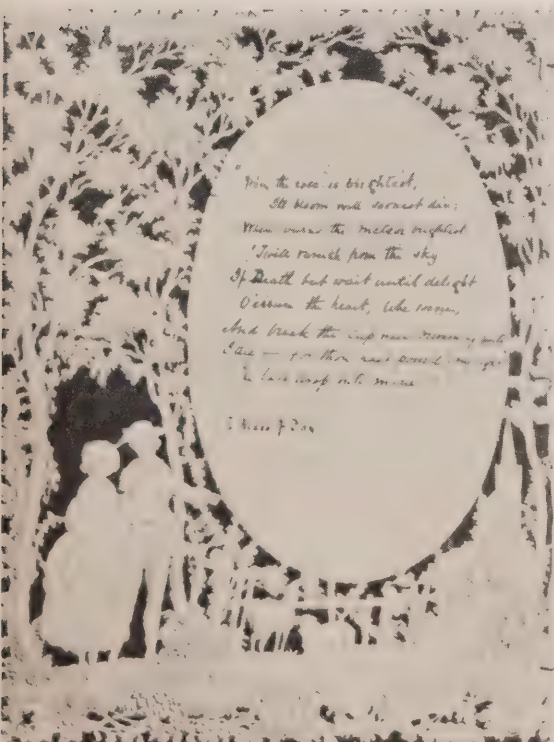 "When the rose is brightest,
Its bloom will soonest die;
When burns the meteor brightest
'Twill vanish from the sky
If Death but wait until delight
O'errun the heart, like wine,
And break the cup when brimming quite
I die — for thou hast poured
The last drop into mine